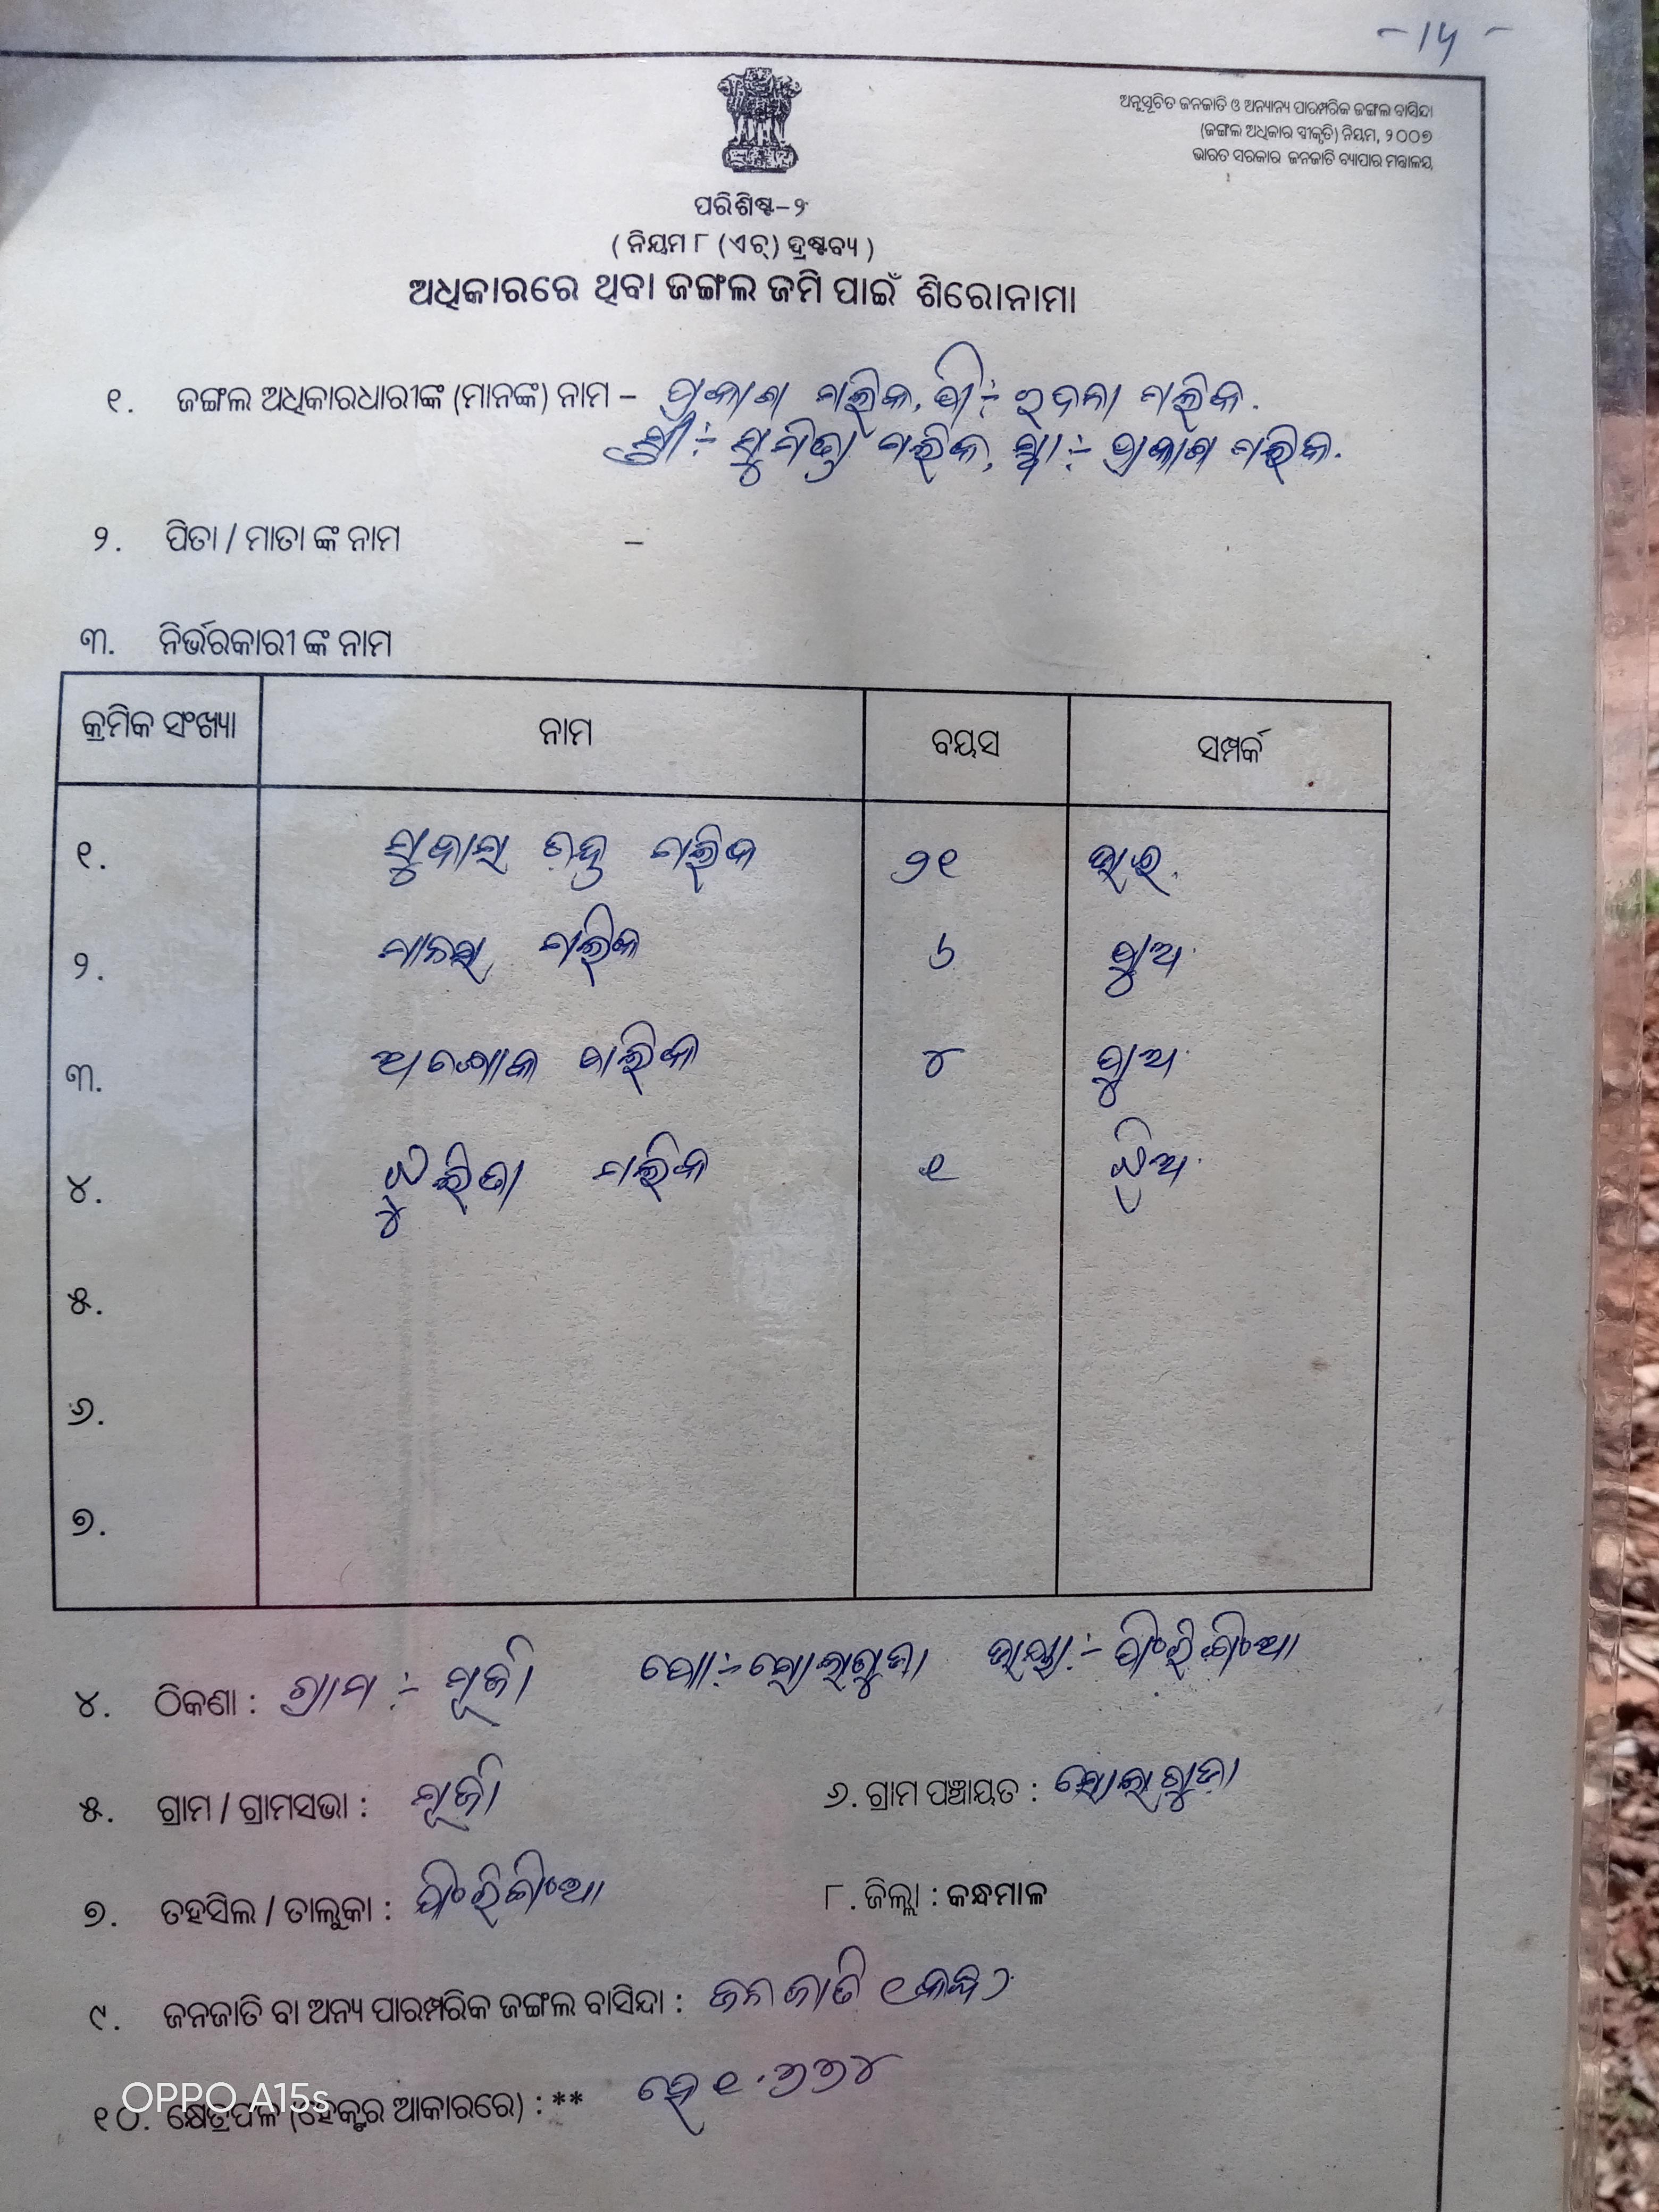 -14-
ଅନୁସୂଚିତ ଜନଜାତି ଓ ଅନ୍ୟାନ୍ୟ ପାରମ୍ପରିକ ଜଙ୍ଗଲ ବାସିନ୍ଦା
(ଜଙ୍ଗଲ ଅଧିକାର ସ୍ୱୀକୃତି) ନିୟମ, ୨୦୦୭
ଭାରତ ସରକାର ଜନଜାତି ବ୍ୟାପାର ମନ୍ତ୍ରାଳୟ
ପରିଶିଷ୍ଟ-୨
( ନିୟମ ୮ (ଏଚ୍) ଦ୍ରଷ୍ଟବ୍ୟ )
ଅଧିକାରରେ ଥିବା ଜଙ୍ଗଲ ଜମି ପାଇଁ ଶିରୋନାମା
୧. ଜଙ୍ଗଲ ଅଧିକାରଧାରୀଙ୍କ (ମାନଙ୍କ) ନାମ – ପ୍ରକାଶ ମଲ୍ଲିକ, ପି:- ମଲ୍ଲିକ.
ସ୍ତ୍ରୀ:- ସୁମିତ୍ରା ମଲ୍ଲିକ, ସ୍ୱା:- ପ୍ରକାଶ ମଲ୍ଲିକ.
୨. ପିତା / ମାତା ଙ୍କ ନାମ –
୩. ନିର୍ଭରକାରୀ ଙ୍କ ନାମ
କ୍ରମିକ ସଂଖ୍ୟା ନାମ ବୟସ ସମ୍ପର୍କ
୧. ମଲ୍ଲିକ ୨୧ ଭାଇ
୨. ମାନସ ମଲ୍ଲିକ ୬ ପୁଅ
୩. ଅଶୋକ ମଲ୍ଲିକ ୪ ପୁଅ
୪. ମଲ୍ଲିକ ୧ ଝିଅ
୫.
୬.
୭.
୪. ଠିକଣା : ଗ୍ରାମ :- ମୂର୍ଜା ପୋ:- ସୋଲାଗୁଡା ଭାୟା:- ଫିରିଙ୍ଗିଆ
୫. ଗ୍ରାମ / ଗ୍ରାମସଭା : ମୂର୍ଜା ୬. ଗ୍ରାମ ପଞ୍ଚାୟତ : ସୋଲାଗୁଡା
୭. ତହସିଲ / ତାଲୁକା : ଫିରିଙ୍ଗିଆ ୮. ଜିଲ୍ଲା : କନ୍ଧମାଳ
୯. ଜନଜାତି ବା ଅନ୍ୟ ପାରମ୍ପରିକ ଜଙ୍ଗଲ ବାସିନ୍ଦା : ଜନଜାତି (କନ୍ଧ)
୧୦. କ୍ଷେତ୍ରଫଳ (ହେକ୍ଟର ଆକାରରେ) : ** ହେ ୧.୬୭୪
OPPO A15s